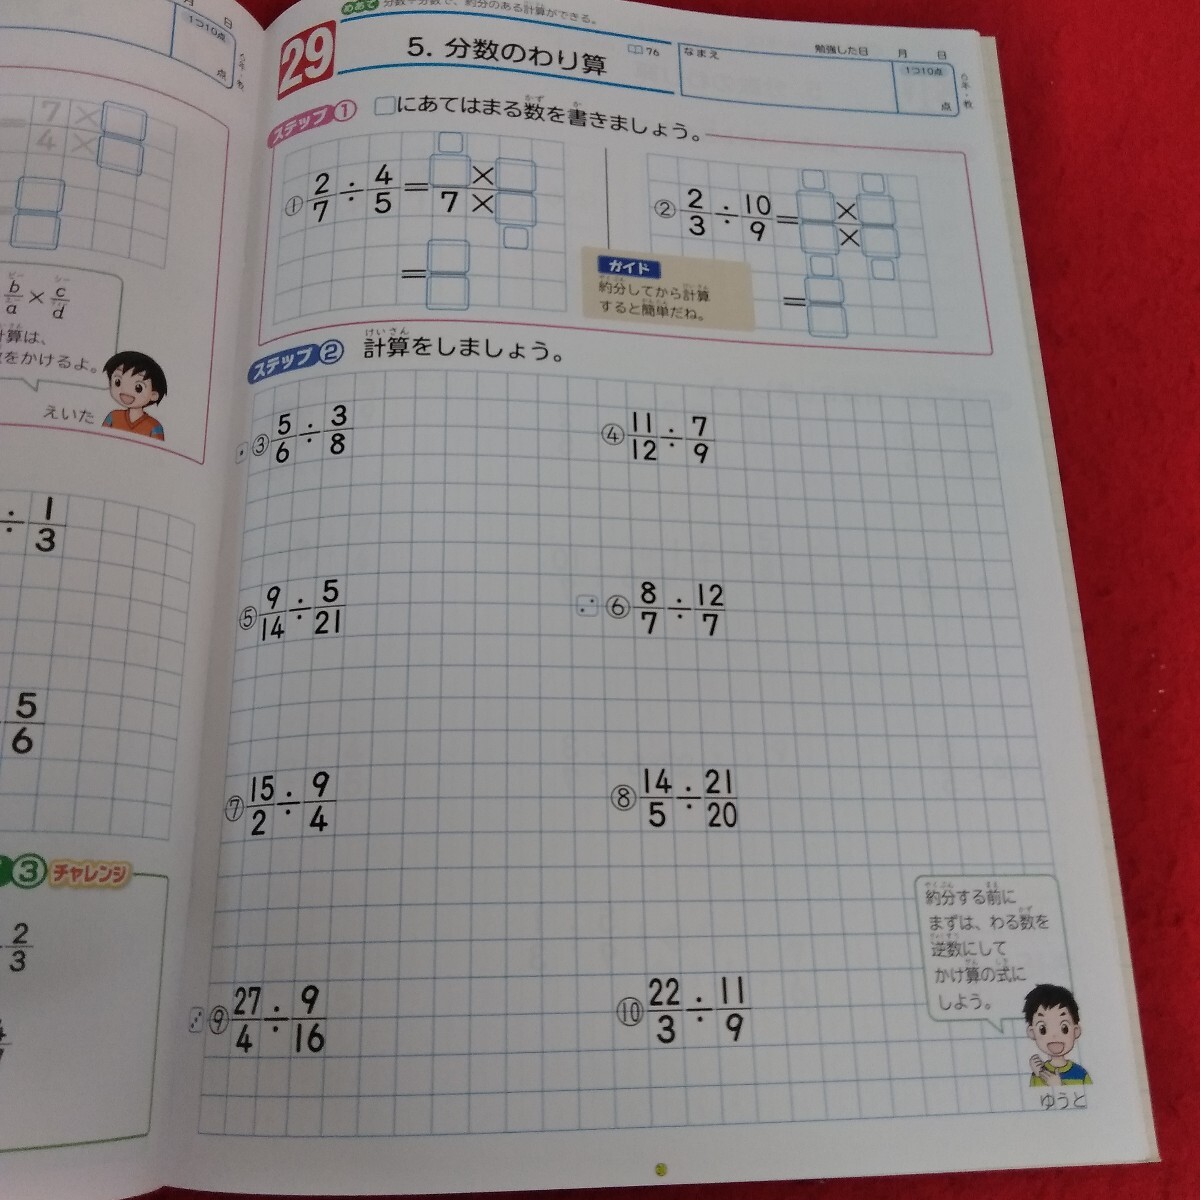 月 日
1つ10点
点
7 ×
4 ×
b/a × c/d
算は、
をかけるよ。
えいた
÷ 1/3
5/6
3 チャレンジ
2/3
めあて 分数÷分数で、約分のある計算ができる。
29
5. 分数のわり算
76
なまえ
勉強した日 月 日
1つ10点
点
ステップ 1 □にあてはまる数を書きましょう。
① 2/7 ÷ 4/5 = □×□/7×□
= □/□
② 2/3 ÷ 10/9 = □×□/□×□
= □/□
ガイド
約分してから計算
すると簡単だね。
ステップ 2 計算をしましょう。
③ 5/6 ÷ 3/8
④ 11/12 ÷ 7/9
⑤ 9/14 ÷ 5/21
⑥ 8/7 ÷ 12/7
⑦ 15/2 ÷ 9/4
⑧ 14/5 ÷ 21/20
⑨ 27/4 ÷ 9/16
⑩ 22/3 ÷ 11/9
約分する前に
まずは、わる数を
逆数にして
かけ算の式に
しよう。
ゆうと